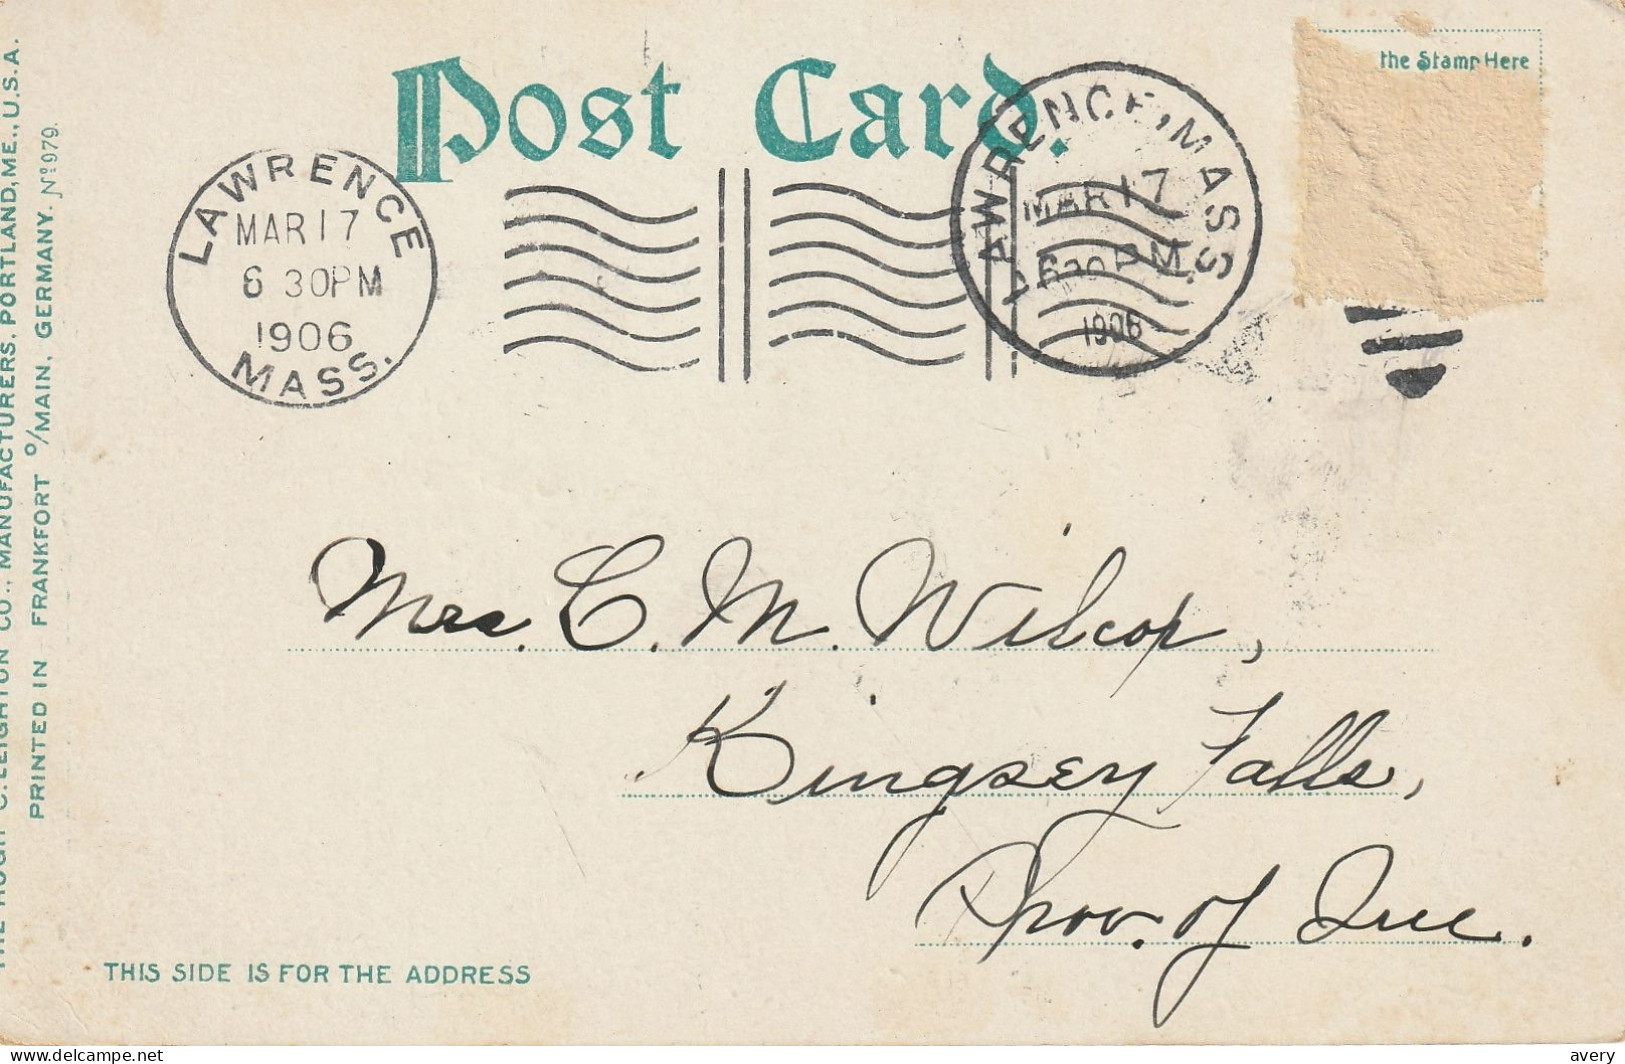 Post Card.
the Stamp Here
LAWRENCE
MAR 17
6 30PM
1906
MASS.
LAWRENCE, MASS.
MAR 17
630 PM
1906
Mrs. C. M. Wilcox,
Kingsey Falls,
Prov. of Que.
THIS SIDE IS FOR THE ADDRESS
THE HUGH C. LEIGHTON CO., MANUFACTURERS, PORTLAND, ME., U.S.A.
PRINTED IN FRANKFORT o/MAIN, GERMANY. No 979.
avery